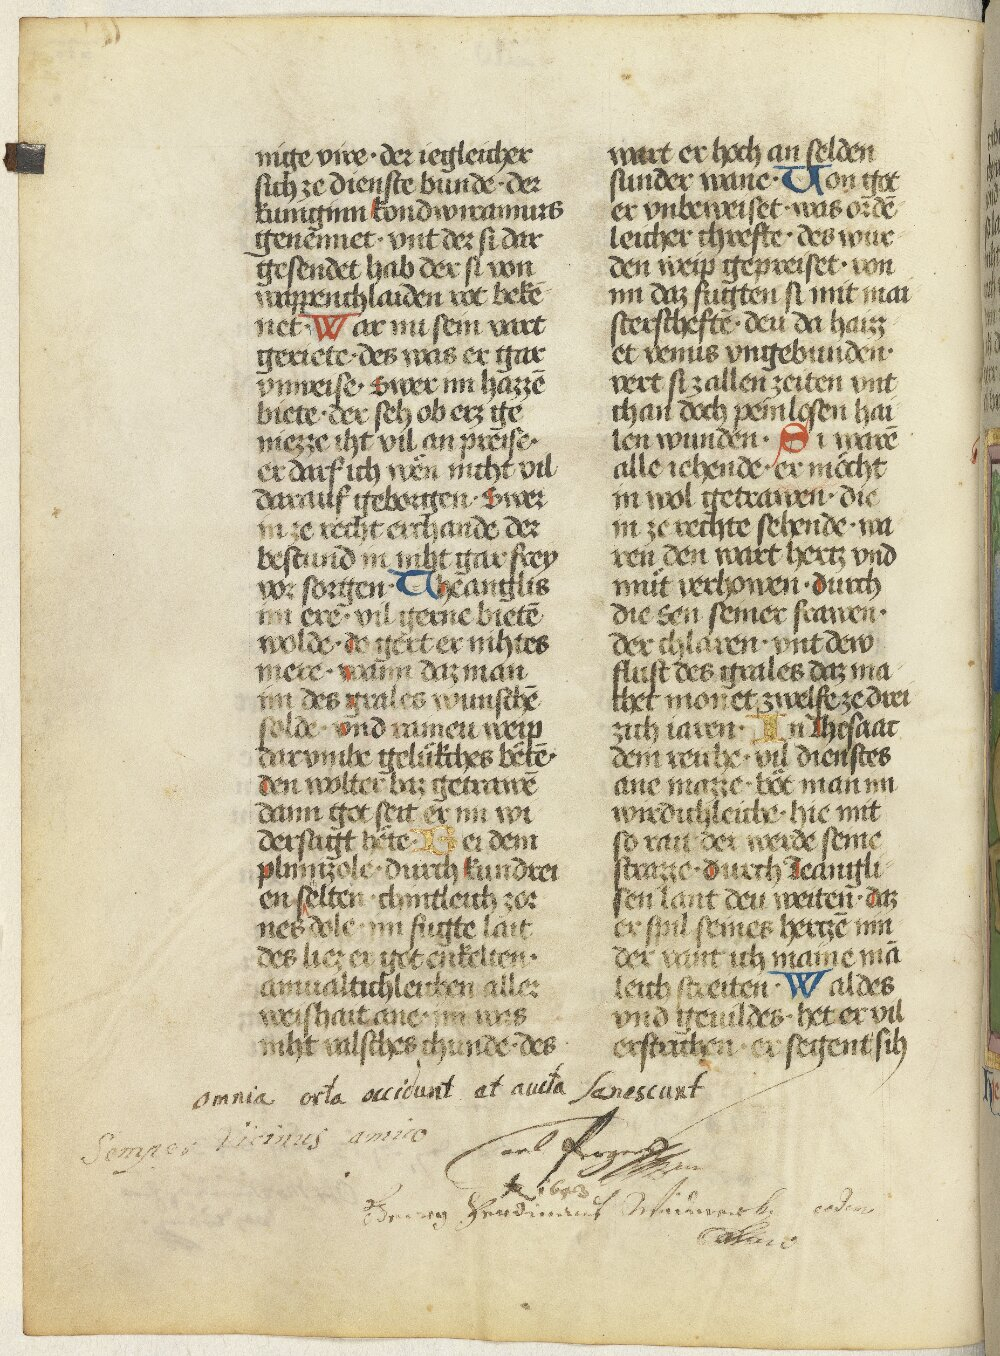 nige vire · der iegleicher
sich ze dienste bunde · der
kuniginn kondwiramurs
genennet · vnt der si dar
gesendet hab der si von
wappenchlaiden rot bekē
net · War nu sein vart
geriete · des was er gar
vnweise · Swer im hazzē
biete · der seh ob erz ge
niezze iht vil an preise ·
er darf ich wen nicht vil
darauf geborgen · Swer
in ze recht erchande der
bestund in niht gar frey
vor sorgen · Theanglis
im ere · vil gerne bietē
wolde · do gert er nihtes
mere · wann daz man
im des grales wunschē
solde · vnd raineu weip
darvmbe gelükches bētē ·
den wolter baz getrawē
dann got seit er im wi
dersagt hete · Bei dem
plimizole · durch kundrei
en selten · chintleich zor
nes dole · im fugte lait
des liez er got enkelten ·
amualtichleichen aller
weishait ane · im was
niht valsches chunde · des
wart er hoch an selden
sunder wane · Von got
er vnbeweiset · was ordē
leicher chrefte · des wur
den weip gepreiset · von
im daz fugten si mit mai
sterscheftē · deu da haizz
et venus vngebunden ·
vert si zallen zeiten vnt
chan doch peinlosen hai
len wunden · Si warē
alle iehende · er möcht
in wol getrawen · die
in ze rechte sehende · wa
ren den wart hertz vnd
müt verhowen · durch
die sen seiner frawen ·
der chlaren · vnt dew
flust des grales daz ma
chet monet zwelfe ze drei
zich iaren · In Thesaat
dem reiche · vil dienstes
ane mazze · böt man im
wirdichleiche · hie mit
so rait der werde seine
strazze · durch Teangli
sen lant deu weiten · daz
er spil seines hertzē min
der vant ich maine mā
leich streiten · Waldes
vnd geuildes · het er vil
erstrichen · er segent sih
omnia orta occidunt et aucta senescunt
Semper Vicinus amico
1603
Georg Ferdinandt